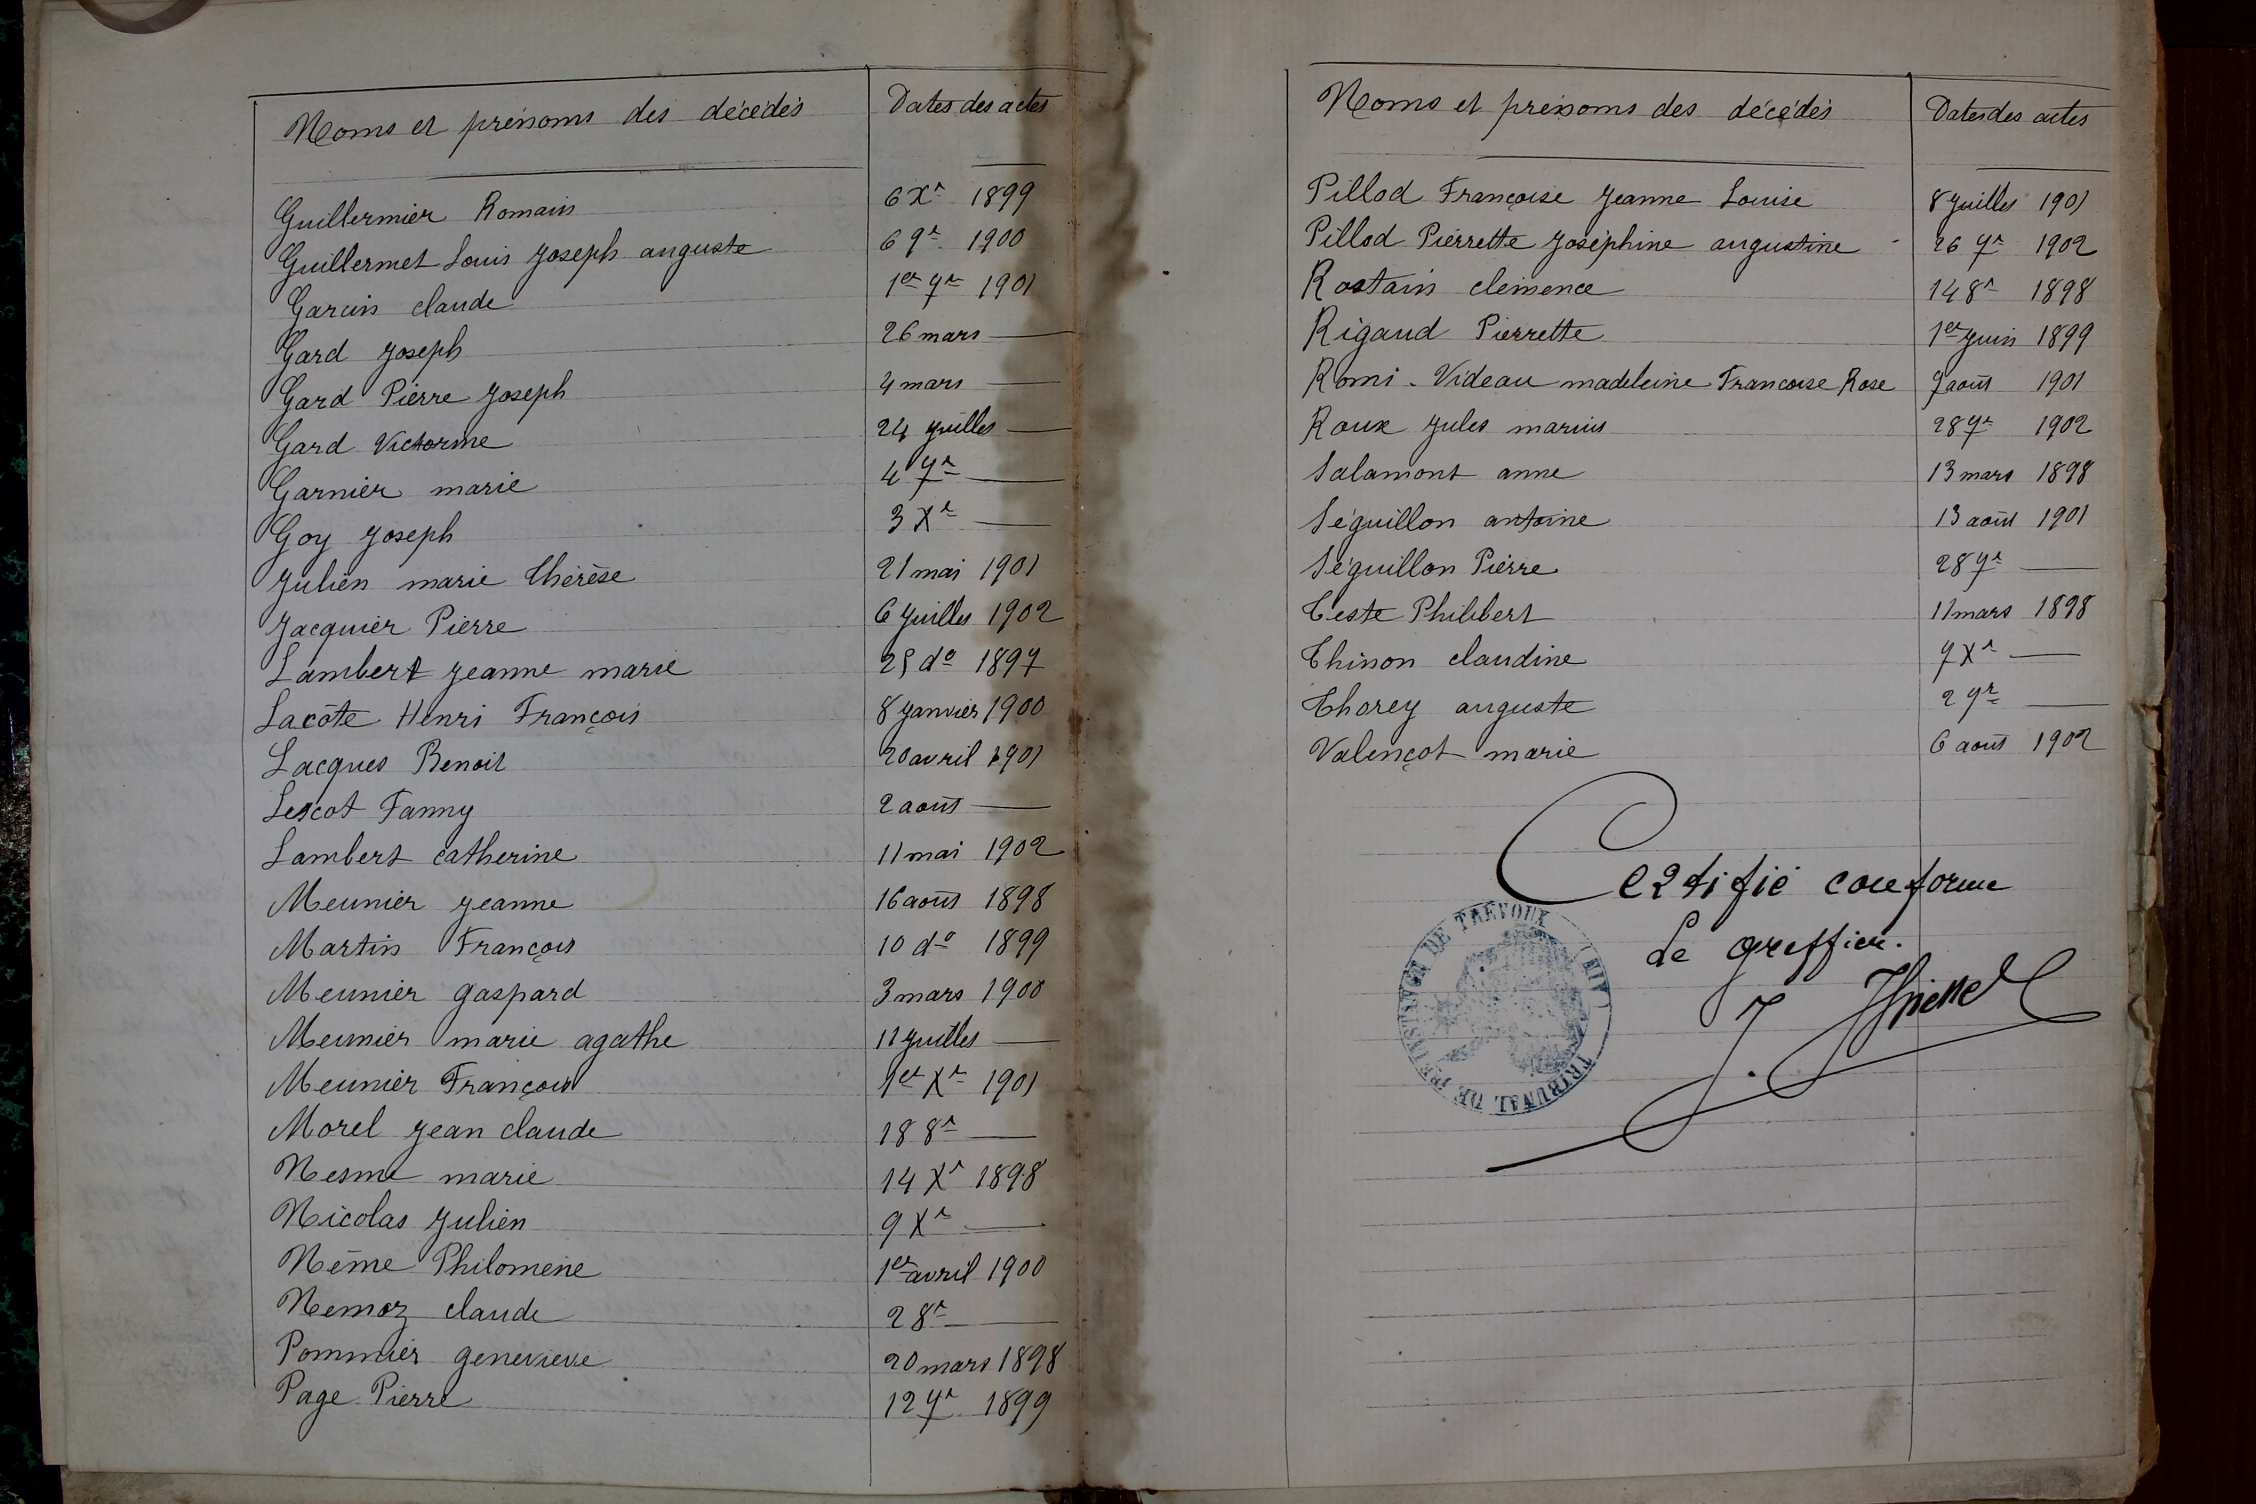 Noms et prénoms des décédés Dates des actes
Guillermier Romain 6 Xr 1899
Guillermet Louis Joseph auguste 6 9r 1900
Garcin claude 1er 7r 1901
Gard Joseph 26 mars —
Gard Pierre Joseph 4 mars —
Gard Victorine 24 Juillet —
Garnier marie 4 7r —
Goy Joseph 3 Xr —
Julien marie thérèse 21 mai 1901
Jacquier Pierre 6 Juillet 1902
Lambert Jeanne marie 25 do 1897
Lacôte Henri François 8 Janvier 1900
Lacques Benoit 20 avril 1901
Lescot Fanny 2 août —
Lambert catherine 11 mai 1902
Meunier Jeanne 16 août 1898
Martin François 10 do 1899
Meunier gaspard 3 mars 1900
Meunier marie agathe 11 Juillet —
Meunier François 1er Xr 1901
Morel Jean claude 18 8r —
Nesme marie 14 Xr 1898
Nicolas Julien 9 Xr —
Nême Philomène 1er avril 1900
Nemoz claude 2 8r —
Pommier genevieve 20 mars 1898
Page Pierre 12 7r 1899
Noms et prénoms des décédés Dates des actes
Pillod Françoise Jeanne Louise 8 Juillet 1901
Pillod Pierrette Joséphine augustine 26 7r 1902
Rostain clémence 14 8r 1898
Rigaud Pierrette 1er Juin 1899
Romi-Videau madeleine Francoise Rose 7 août 1901
Roux Jules marius 28 7r 1902
Salamont anne 13 mars 1898
Séguillon antoine 13 août 1901
Séguillon Pierre 28 7r —
Teste Philibert 11 mars 1898
Thinon claudine 7 Xr —
Thorey auguste 2 9r —
Valençot marie 6 août 1902
Certifié conforme
Le greffier.
TRIBUNAL DE 1ère INSTANCE DE TREVOUX (AIN)